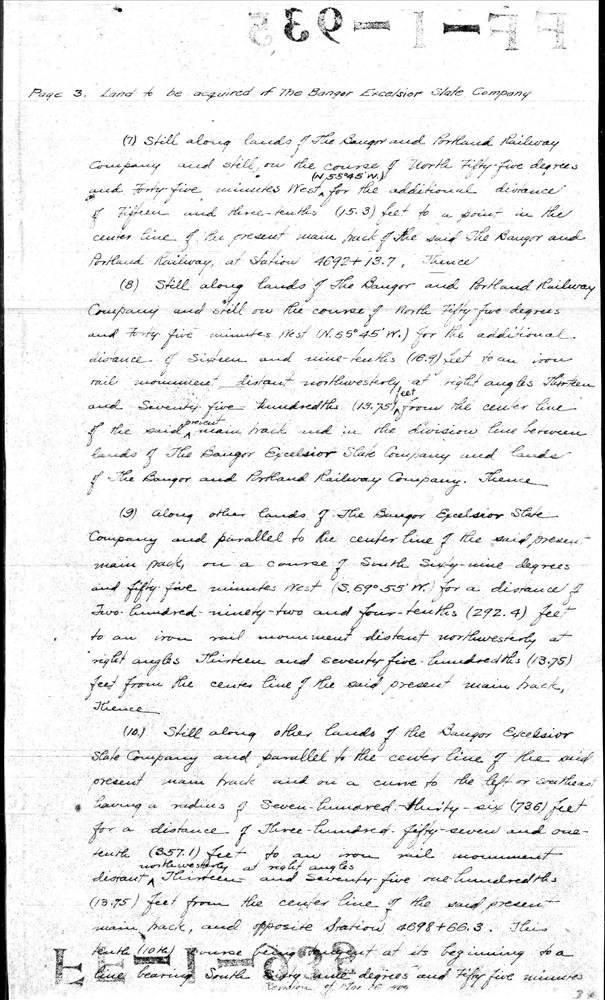 FF-1-935
Page 3. Land to be acquired of The Bangor Excelsior Slate Company
(7) Still along lands of The Bangor and Portland Railway
Company and still on the course of North Fifty-five degrees
and Forty five minutes West (N.55°45'W.) for the additional distance
of Fifteen and three-tenths (15.3) feet to a point in the
center line of the present main track of the said The Bangor and
Portland Railway, at Station 4692+13.7, Thence
(8) Still along lands of The Bangor and Portland Railway
Company and still on the course of North Fifty-five degrees
and Forty five minutes West (N.55°45'W.) for the additional
distance of Sixteen and nine-tenths (16.9) feet to an iron
rail monument distant northwesterly at right angles Thirteen
and Seventy five hundredths (13.75) feet from the center line
of the said present main track and in the division line between
lands of The Bangor Excelsior Slate Company and lands
of The Bangor and Portland Railway Company. Thence
(9) along other lands of The Bangor Excelsior Slate
Company and parallel to the center line of the said present
main track, on a course of South Sixty-nine degrees
and fifty-five minutes West (S.69°55'W.) for a distance of
Two-hundred-ninety-two and four-tenths (292.4) feet
to an iron rail monument distant northwesterly at
right angles Thirteen and seventy five-hundredths (13.75)
feet from the center line of the said present main track,
Thence
(10.) Still along other lands of the Bangor Excelsior
Slate Company and parallel to the center line of the said
present main track and on a curve to the left or southeast
having a radius of Seven-hundred-thirty-six (736) feet
for a distance of Three-hundred-fifty-seven and one-
tenth (357.1) feet to an iron rail monument
distant northwesterly at right angles Thirteen and Seventy-five one-hundredths
(13.75) feet from the center line of the said present
main track, and opposite Station 4698+66.3. This
tenth (10th) course being tangent at its beginning to a
line bearing South Sixty nine degrees and Fifty five minutes
FF-1-935
Revision of Mar